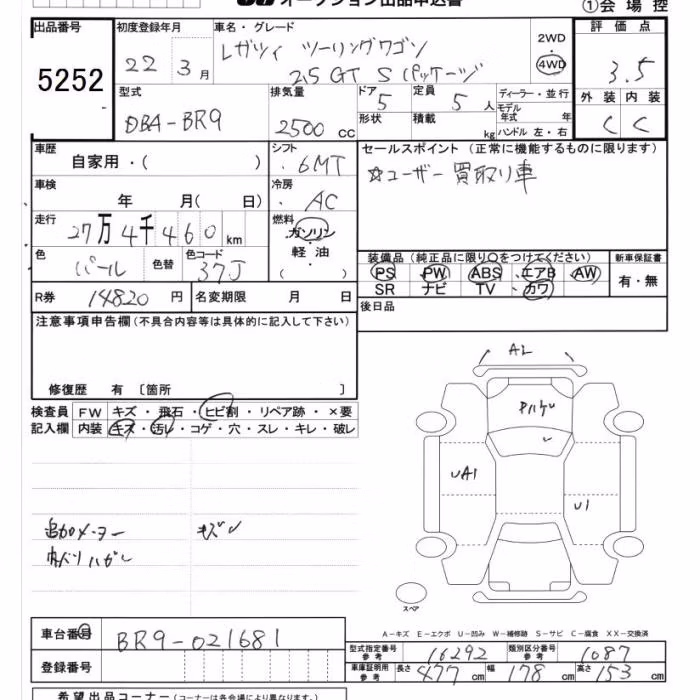 オークション出品申込書 ①会場控
出品番号 初度登録年月 車名・グレード 評価点
5252 22 3月 レガツィ ツーリングワゴン 2WD・4WD 3.5
2.5 GT S パッケージ
型式 排気量 ドア 5 定員 5人 ディーラー・並行 外装 内装
DBA-BR9 2500 cc 形状 積載 kg モデル年式 年 C C
ハンドル 左・右
車歴 シフト セールスポイント (正常に機能するものに限ります)
自家用・( ) 6MT ☆ユーザー買取り車
車検 冷房
年 月( 日) AC
走行 燃料
27万4千460km ガソリン
軽油
( )
色 色替 色コード 装備品(純正品に限り○をつけてください) 新車保証書
パール 37J PS PW ABS エアB AW 有・無
SR ナビ TV カワ
R券 14820円 名変期限 月 日 後日品
注意事項申告欄(不具合内容等は具体的に記入して下さい)
修復歴 有 〔箇所 〕
検査員 FW キズ・飛石・ヒビ割・リペア跡・×要
記入欄 内装 キズ・汚レ・コゲ・穴・スレ・キレ・破レ
A2
UA1
U1
追加メーター キズン
内バリハガレ
スペア
A-キズ E-エクボ U-凹み W-補修跡 S-サビ C-腐食 XX-交換済
車台番号 BR9-021681
型式指定番号 参考 16292 類別区分番号 参考 1087
登録番号 車庫証明用 参考 長さ 477cm 幅 178cm 高さ 153cm
希望出品コーナー(コーナーは各会場により異なります。)